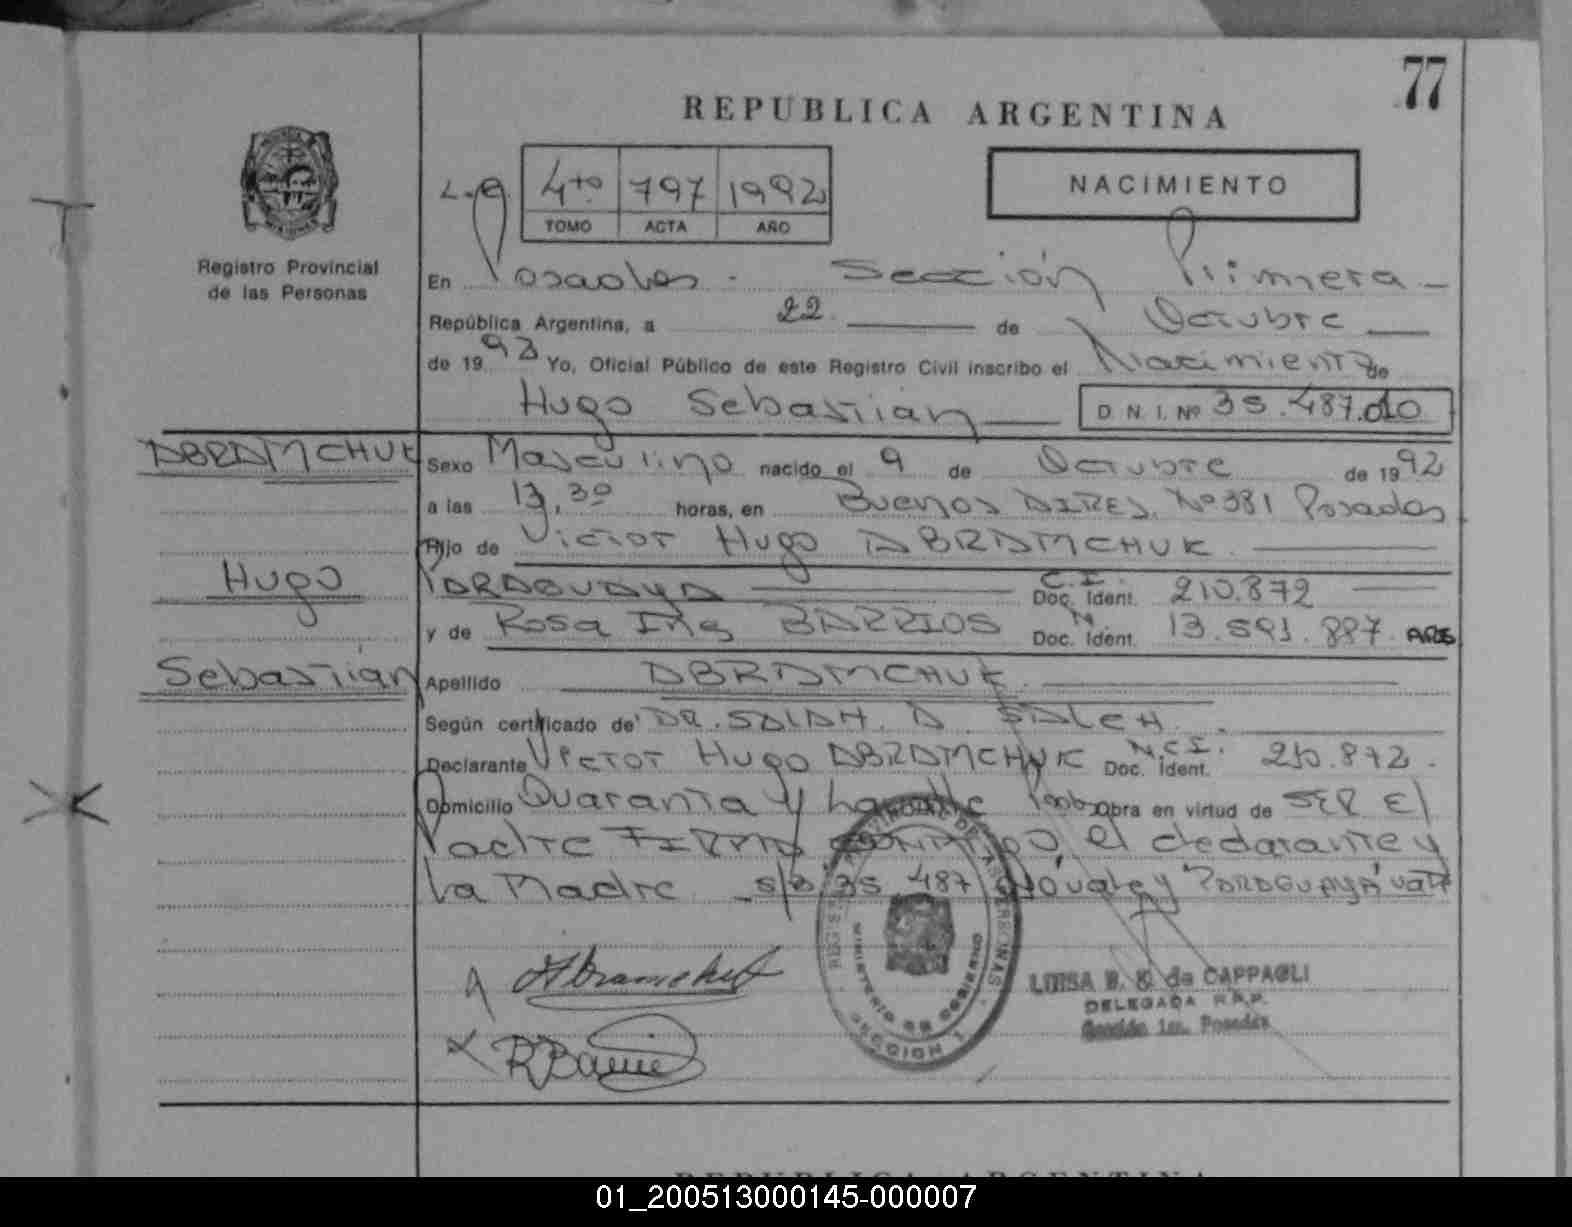 77
REPUBLICA ARGENTINA
NACIMIENTO
4to 797 1992
TOMO ACTA AÑO
Registro Provincial
de las Personas
En Posadas - Sección Primera -
República Argentina, a 22 de Octubre
de 1992 Yo, Oficial Público de este Registro Civil inscribo el Nacimiento de
Hugo Sebastian D. N. I. Nº 35.487.010
ABRAMCHUK
Sexo Masculino nacido el 9 de Octubre de 1992
a las 13,30 horas, en Buenos AIRES, Nº 381 Posadas
Hijo de Victor Hugo ABRAMCHUK.
Hugo
PARAGUAYA C.I. Doc. Ident. 210.872
y de Rosa Inés BARRIOS N. Doc. Ident. 13.591.887 ARG
Sebastián
Apellido ABRAMCHUK
Según certificado de DR. SALAH. A SALEH.
Declarante Victor Hugo ABRAMCHUK N.C.I. Doc. Ident. 210.872.
Domicilio Quaranta y Obra en virtud de SER El
Padre FIRMA CONMIGO, el declarante y
La Madre s/b 35 487 vale y "PARAGUAYA" vale
Abramchuk
RBarrios
REGISTRO PROVINCIAL DE LAS PERSONAS
MINISTERIO DE GOBIERNO
SECCION 1
LUISA B. G. de CAPPAGLI
DELEGADA R.P.P.
Sección 1ra. Posadas
REPUBLICA ARGENTINA
01_200513000145-000007